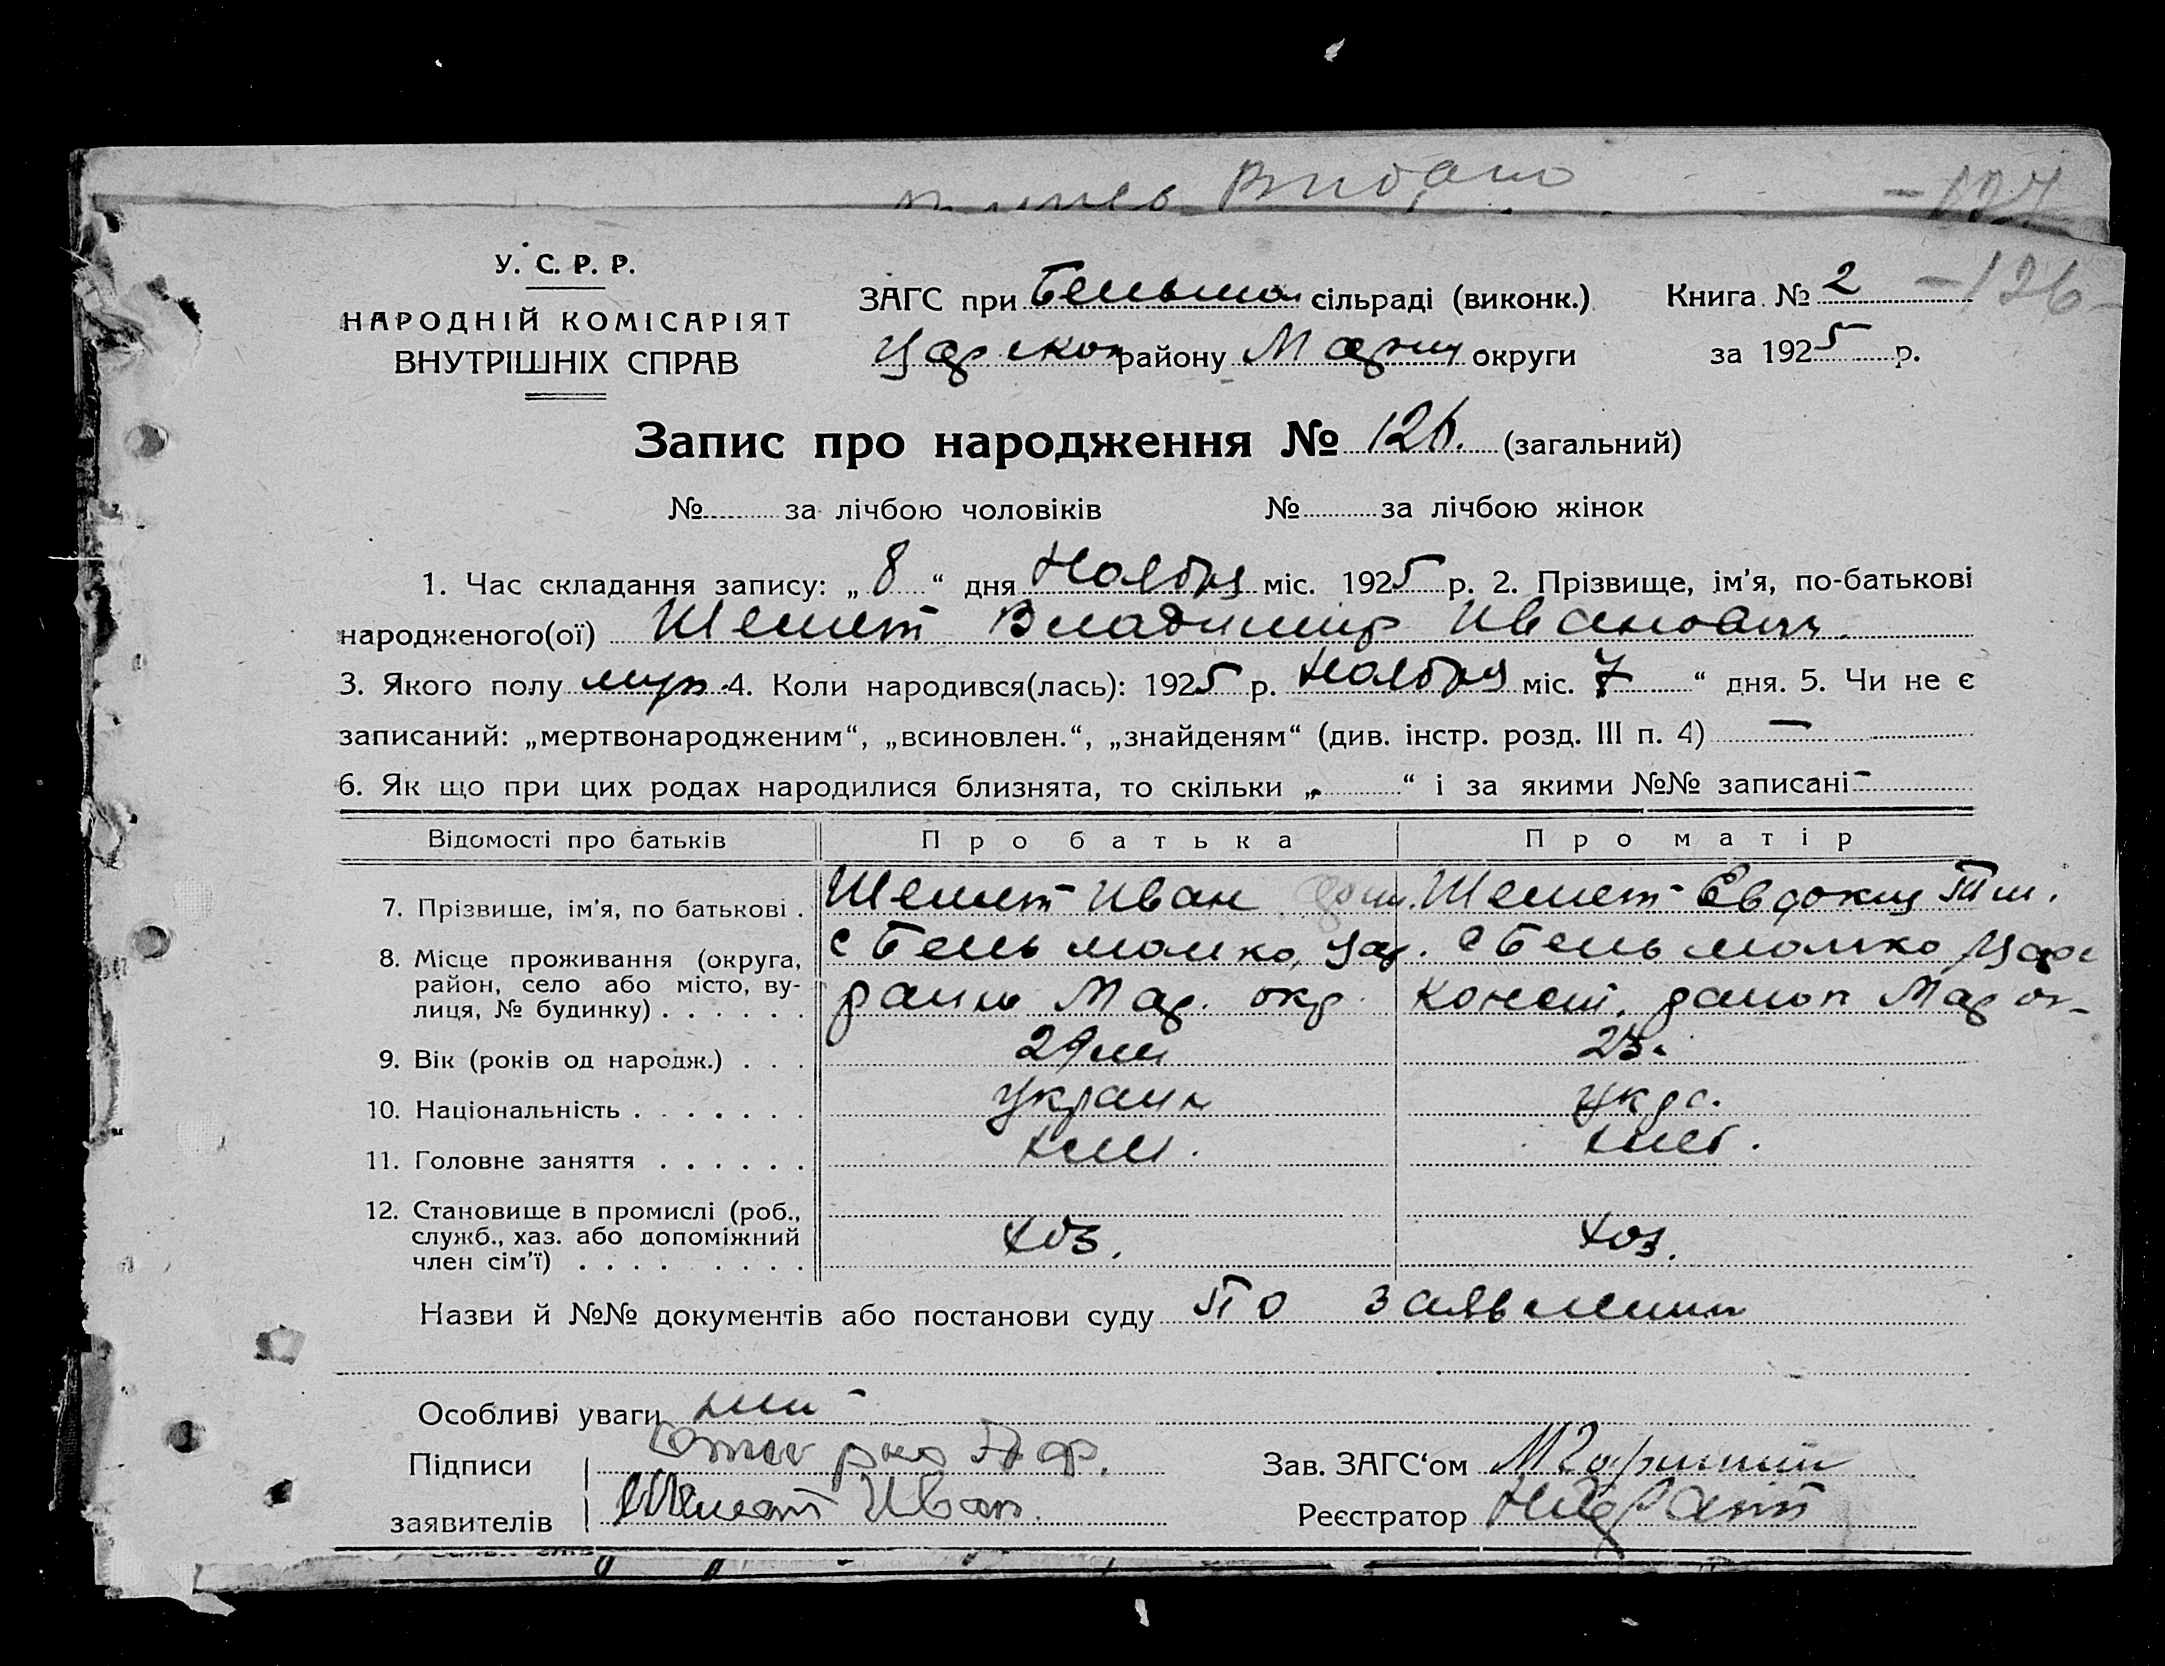 Видано
-127
У. С. Р. Р.
НАРОДНІЙ КОМІСАРІЯТ
ВНУТРІШНІХ СПРАВ
ЗАГС при сільраді (виконк.)
району округи
Книга № 2 -126-
за 1925 р.
Запис про народження № 126. (загальний)
№ за лічбою чоловіків № за лічбою жінок
1. Час складання запису: „ 8 “ дня Ноября міс. 1925 р. 2. Прізвище, ім’я, по-батькові
народженого(ої) Шемет Владимир Иванович.
3. Якого полу муж. 4. Коли народився(лась): 1925 р. Ноября міс. 7 “ дня. 5. Чи не є
записаний: „мертвонародженим“, „всиновлен.“, „знайденям“ (див. інстр. розд. III п. 4) —
6. Як що при цих родах народилися близнята, то скільки „ “ і за якими №№ записані -
Відомості про батьків Про батька Про матір
7. Прізвище, ім’я, по батькові . Шемет Иван Шемет Евдокия Тим.
8. Місце проживання (округа, район, село або місто, вулиця, № будинку) . . . . . .
с Мар. окр.
с Мар ок-
9. Вік (років од народж.) . . . 29 23.
10. Національність . . . . . . . украин укра.
11. Головне заняття . . . . . . хлеб. хлеб.
12. Становище в промислі (роб.,
служб., хаз. або допоміжний
член сім’ї) . . . . . . . . хоз. хоз.
Назви й №№ документів або постанови суду По заявлении
Особливі уваги
Підписи
заявителів Шемет Иван
Зав. ЗАГС‘ом
Реєстратор